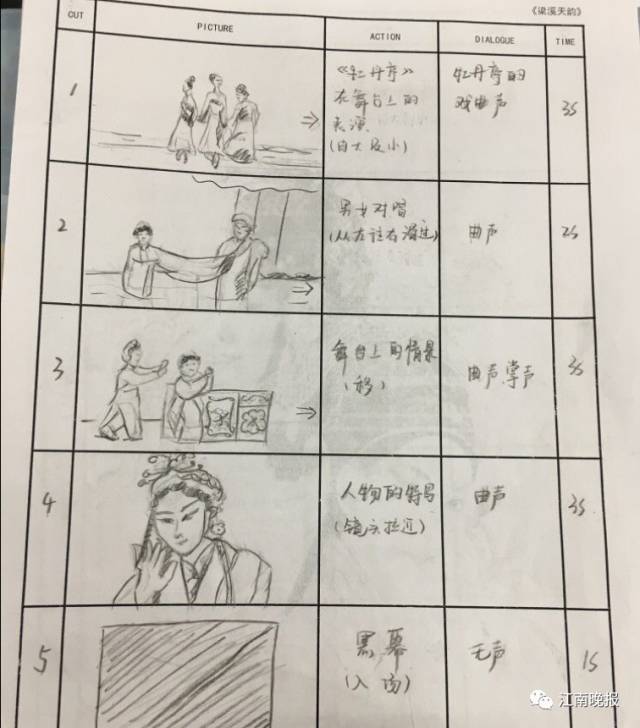 《梁溪天韵》
CUT PICTURE ACTION DIALOGUE TIME
1
《牡丹亭》
在舞台上的
表演
(由大及小)
牡丹亭的
戏曲声
3s
2
男女对唱
(从左往右滑过)
曲声
2s
3
舞台上的情景
(移)
曲声,掌声
3s
4
人物的特写
(镜头拉近)
曲声
3s
5
黑幕
无声
1s
江南晚报